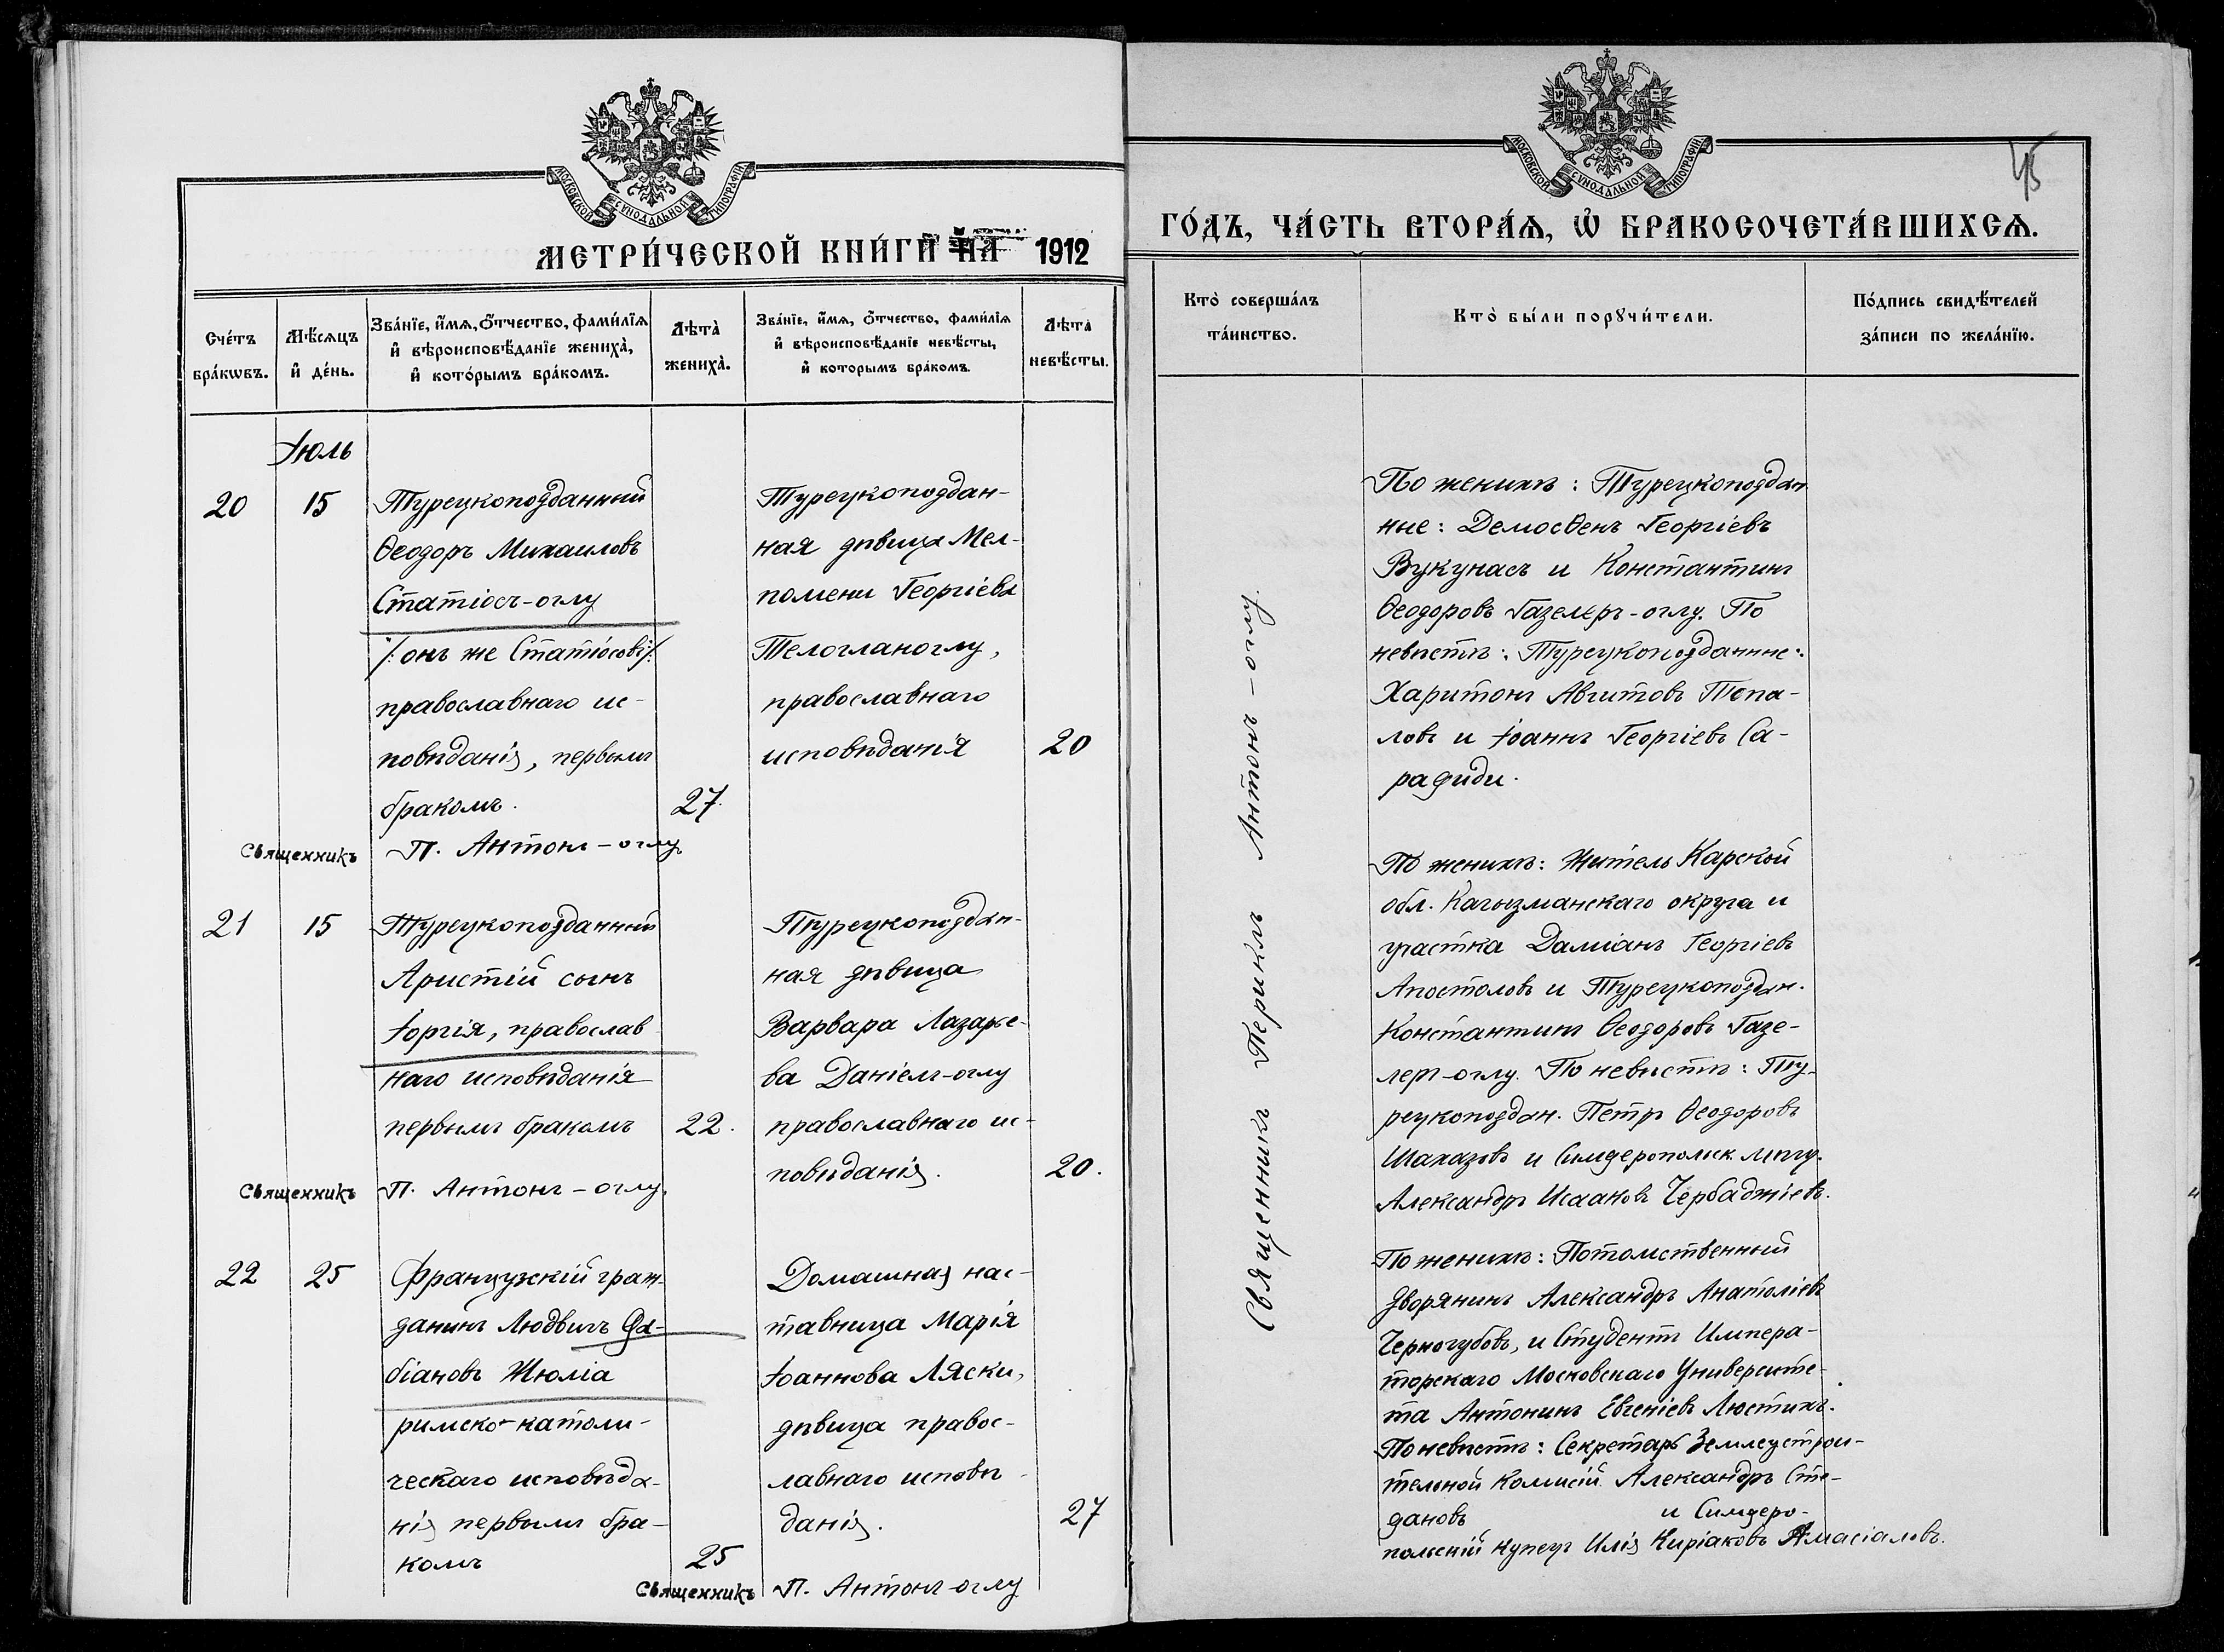 МОСКОВСКОЙ СѴНОДАЛЬНОЙ ТИПОГРАФІИ.
МЕТРИ́ЧЕСКОЙ КНИ́ГИ НА 1912
Сче́тъ бра́кѡвъ.
Мѣ́сѧцъ и҆ де́нь.
Зва́нїе, и҆́мѧ, ѻ҆́тчество, фами́лїѧ
и҆ вѣроисповѣ́данїе жениха̀,
и҆ кото́рымъ бра́комъ.
Лѣта̀
жениха̀.
Зва́нїе, и҆́мѧ, ѻ҆́тчество, фами́лїѧ
и҆ вѣроисповѣ́данїе невѣ́сты,
и҆ которымъ бра́комъ.
Лѣта̀
невѣ́сты.
Іюль
20
15
Турецкоподданный
Ѳеодоръ Михаиловъ
Статіосъ-оглу
/: онъ же Статіосовъ :/
православнаго ис-
повѣданія, первымъ
бракомъ.
27.
Турецкоподдан-
ная дѣвица Мел-
помени Георгіева
Телогланоглу,
православнаго
исповѣданія
20
Священникъ П. Антонъ-оглу
21
15
Турецкоподданный
Аристій сынъ
Іоргія, православ-
наго исповѣданія
первымъ бракомъ
22.
Турецкоподдан-
ная дѣвица
Варвара Лазарье-
ва Даніелъ-оглу
православнаго ис-
повѣданія.
20.
Священникъ П. Антонъ-оглу.
22
25
Французскій граж-
данинъ Людвигъ Фа-
біановъ Жюліа
римско-католи-
ческаго исповѣда-
нія первымъ бра-
комъ
25
Домашная нас-
тавница Марія
Іоаннова Ляски,
дѣвица правос-
лавнаго исповѣ-
данія.
27
Священникъ П. Антонъ-оглу
МОСКОВСКОЙ СѴНОДАЛЬНОЙ ТИПОГРАФІИ.
45
ГО́ДЪ, ЧА́СТЬ ВТОРА́Ѧ, Ѡ҆ БРАКОСОЧЕТА́ВШИХСѦ.
Кто̀ соверша́лъ
та́инство.
Кто̀ бы́ли порꙋчи́тели.
По́дпись свидѣ́телей
за́писи по жела́нїю.
Священникъ Периклъ Антонъ-оглу.
По женихѣ: Турецкоподдан
ные: Демосѳенъ Георгіевъ
Вукунасъ и Константинъ
Ѳеодоровъ Газелеръ-оглу. По
невѣстѣ: Турецкоподданные:
Харитонъ Авгитовъ Попа-
ловъ и Іоаннъ Георгіевъ Са-
рафиди.
По женихѣ: Житель Карской
обл. Кагызманскаго округа и
участка Даміанъ Георгіевъ
Апостоловъ и Турецкоподдан.
Константинъ Ѳеодоровъ Газе-
леръ-оглу. По невѣстѣ: Ту-
рецкоподдан. Петръ Ѳеодоровъ
Шахазовъ и Симферопольск. мѣщ.
Александръ Исааковъ Чербаджіевъ.
По женихѣ: Потомственный
дворянинъ Александръ Анатоліевъ
Черногубовъ, и Студентъ Импера-
торскаго Московскаго Университе-
та Антонинъ Евгеніевъ Люстихъ.
По невѣстѣ: Секретарь Землеустрои-
тельной Комисіи Александръ Сте-
фановъ и Симферо-
польскій купецъ Илія Киріаковъ Амасіаловъ.